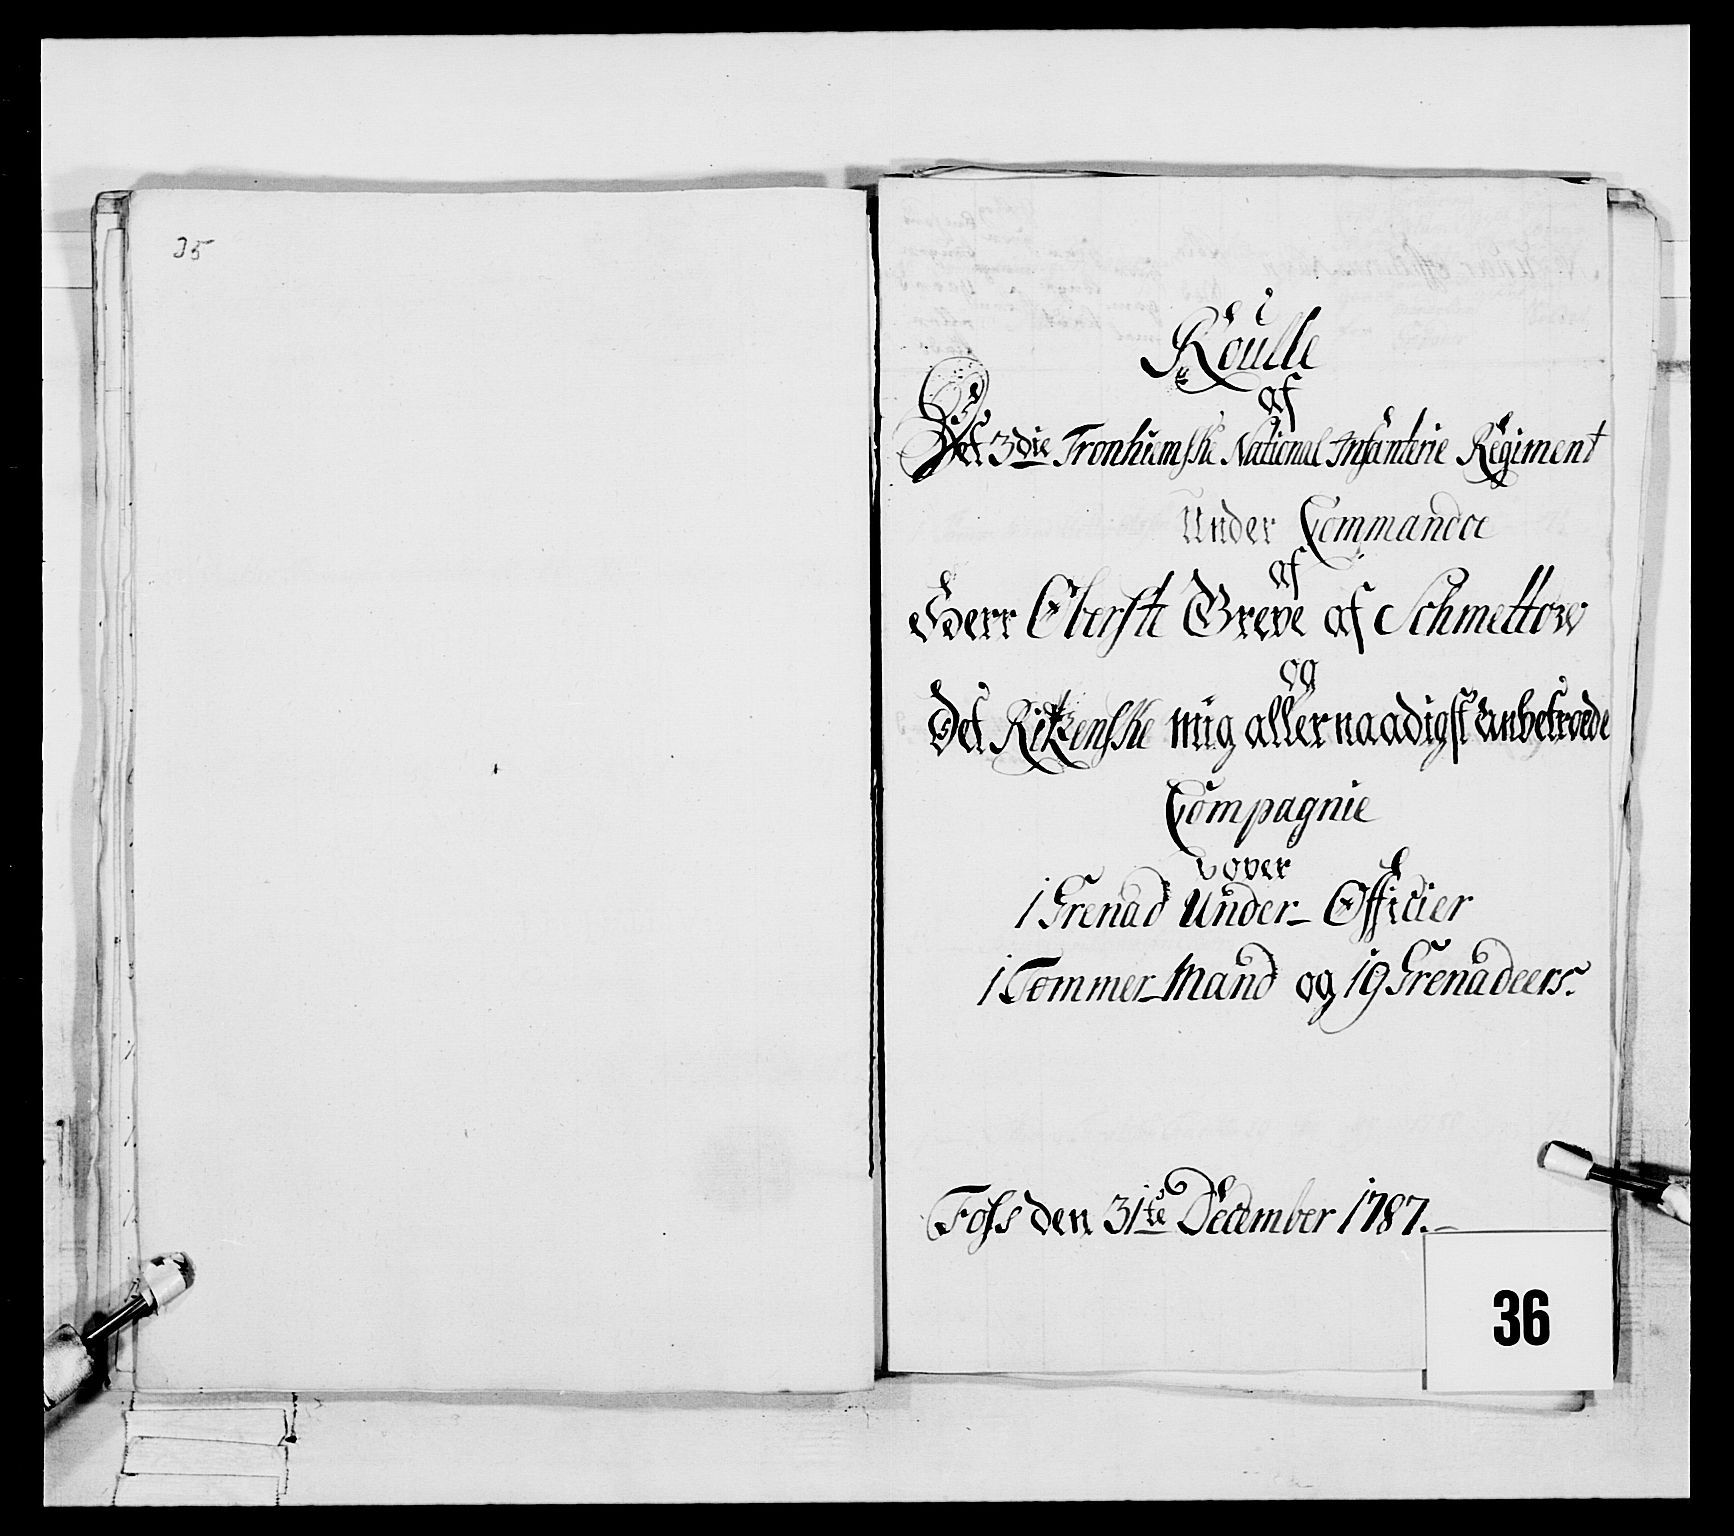 35
Roulle
af
Det 3die Tronhiemske National Infanterie Regiment
Under Commando
af
Herr Oberste Greve af Schmettow
og
Det Ritzenske mig allernaadigst anbetroede
Compagnie
over
1 Grenad Under-Officier
1 Tommer-Mand og 19 Grenadeers.
Foss den 31te December 1787.
36